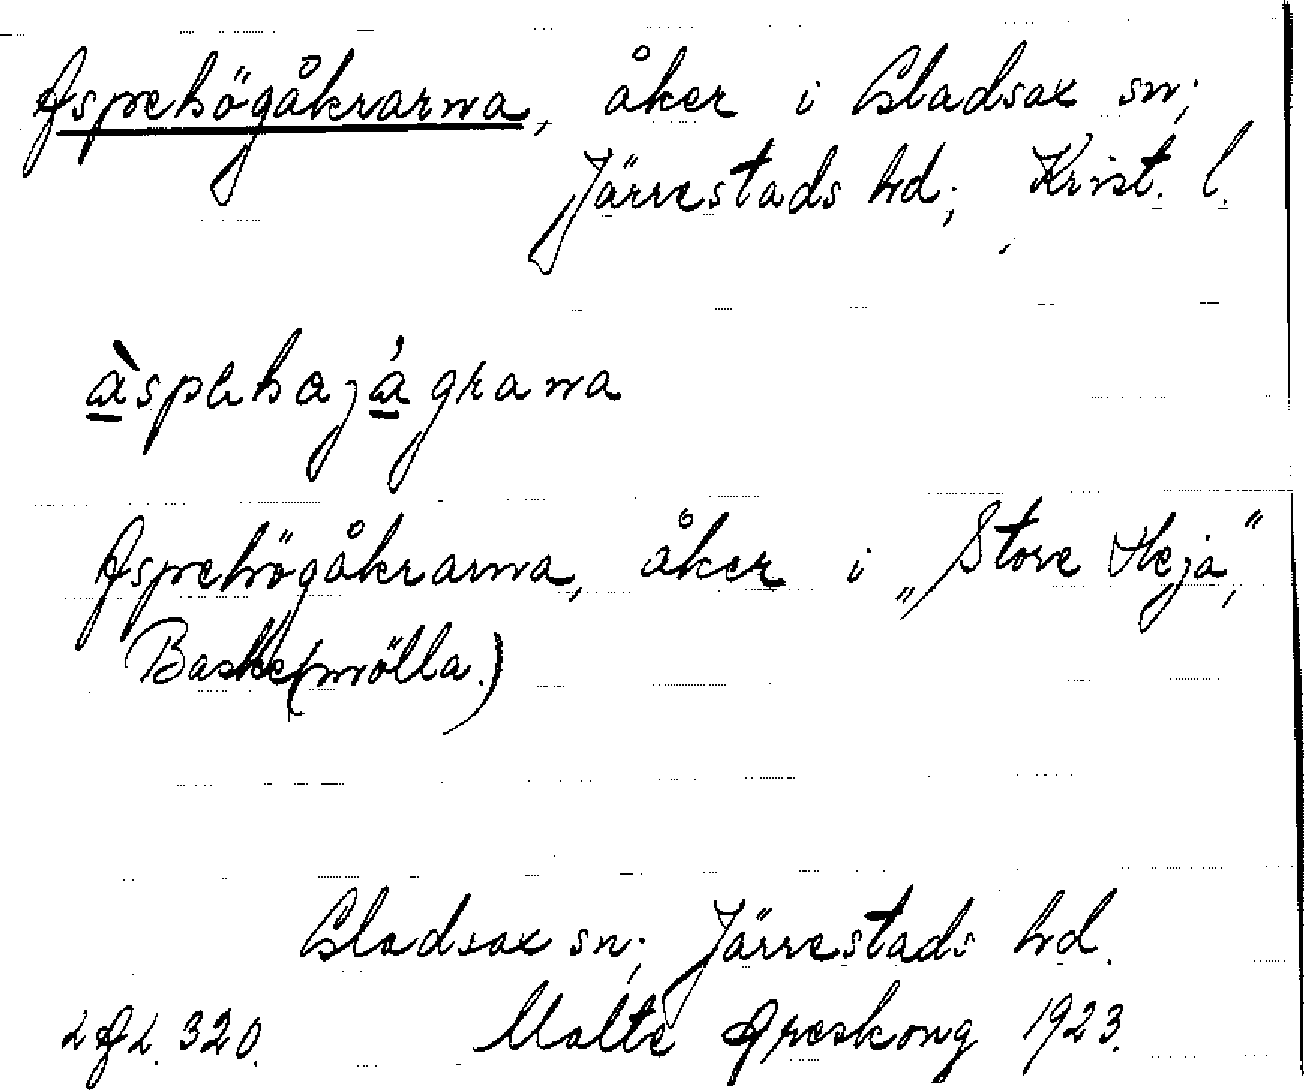 Aspehögåkrarna, åker i Gladsax sn;
Järrestads hd; Krist. l.
àspehajágrana
Aspehögåkrarna, åker i „Store Heja",
Baske(mölla.)
Gladsax sn; Järrestads hd.
LAL. 320. Malte Areskoug 1923.